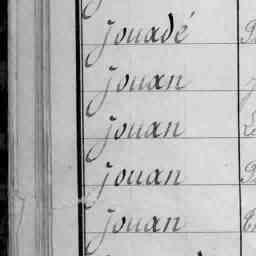 Jouadé
Jouan
Jouan
Jouan
Jouan